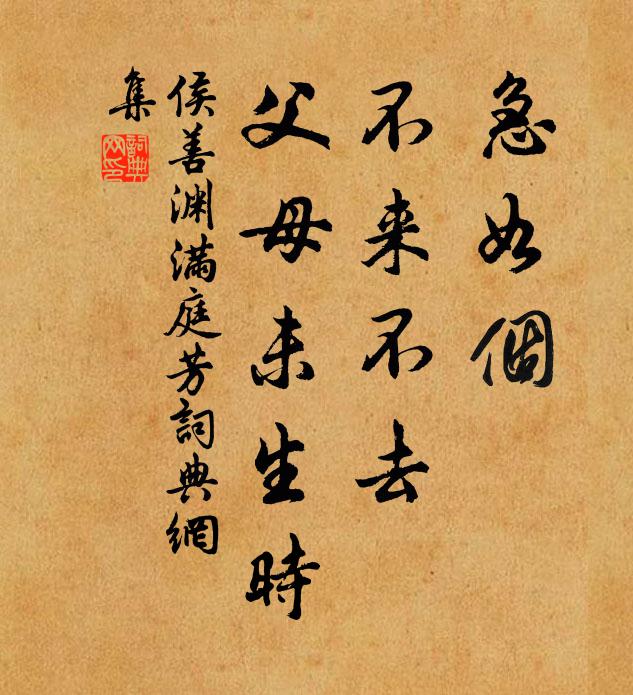 急如個
不来不去
父母未生時
侯善渊满庭芳詞典網
集
詞典
网印